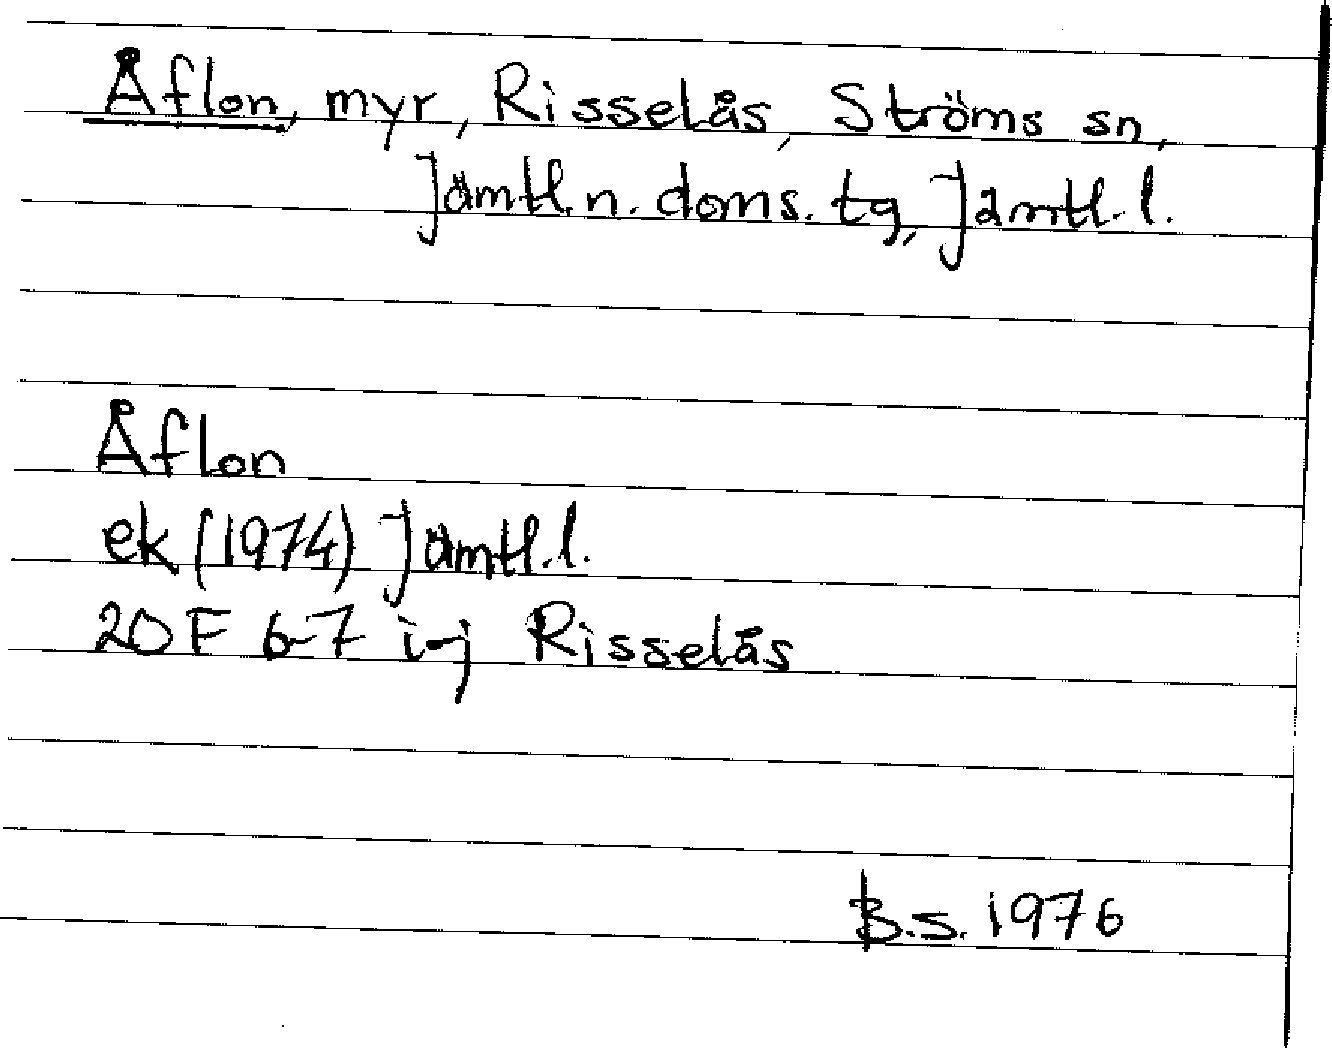 Åflon, myr, Risselås, Ströms sn,
Jämtl.n. doms. tg, Jämtl. l.
Åflon
ek (1974) Jämtl. l.
20 F 6-7 i-j Risselås
B.S. 1976